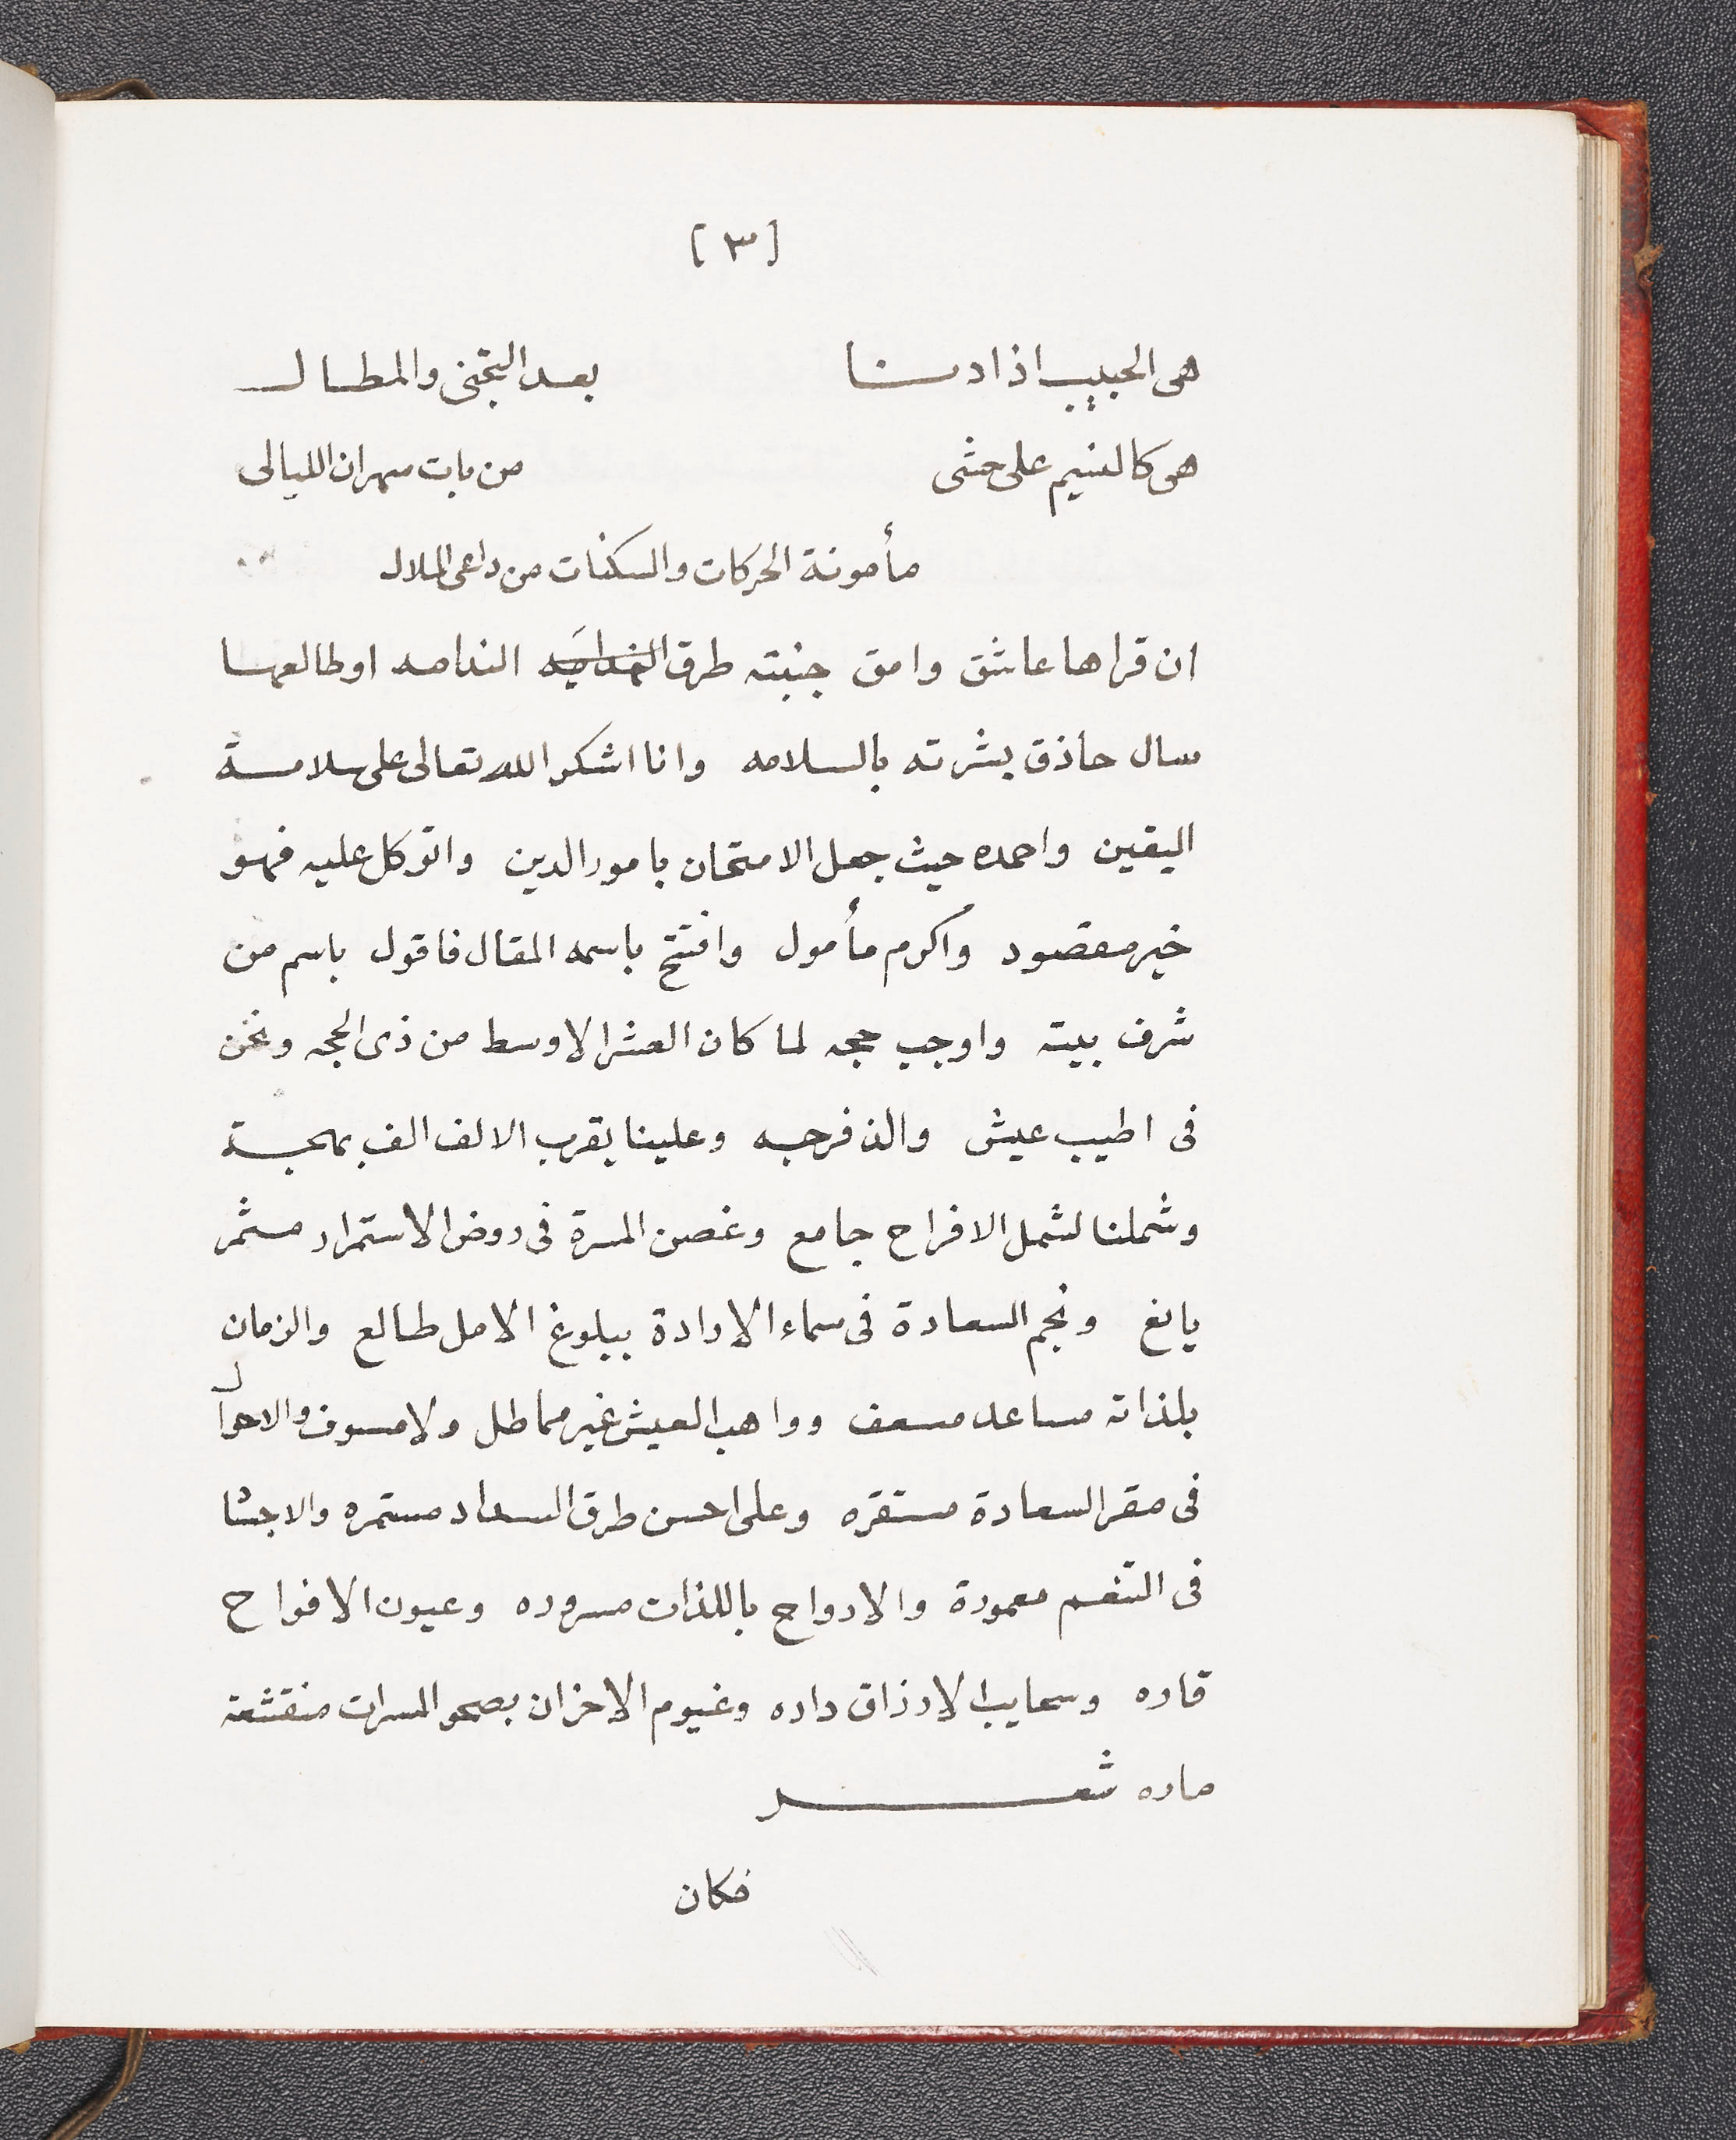 [ ٣ ]
هى الحبيب اذا دنا بعد التجنى والمطال
هى كالنسيم على حشى من بات سهران الليالى
مأمونة الحركات والسكنات من داعى الملال
ان قراها عاشق وامق جنبته طرق الندامه اوطالعها
سال حاذق بشرته بالسلامه وانا اشكر الله تعالى على سلامة
اليقين واحمده حيث جعل الامتحان بامور الدين واتوكل عليه فهو
خير مقصود واكرم مأمول وافتتح باسمه المقال فاقول باسم من
شرف بيته واوجب حجه لما كان العشر الاوسط من ذى الحجه ونحن
فى اطيب عيش والذ فرجه وعلينا بقرب الالف الف بهجة
وشملنا لشمل الافراح جامع وغصن المسرة فى روض الاستمرار مثمر
يانع ونجم السعادة فى سماء الارادة ببلوغ الامل طالع والزمان
بلذاته مساعد مسعف وواهب العيش غير مماطل ولا مسوف والاحوال
فى مقر السعادة مستقره وعلى احسن طرق السداد مستمره والاجسا
فى التنعم معمورة والارواح باللذات مسروره وعيون الافراح
قاره وسحايب الارزاق داره وغيوم الاحزان بصحو المسرات منقشعة
ماره شعر
فكان